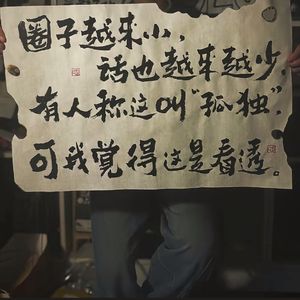 圈子越来小，
话也越来越少，
有人称这叫“孤独”，
可我觉得这是看透。